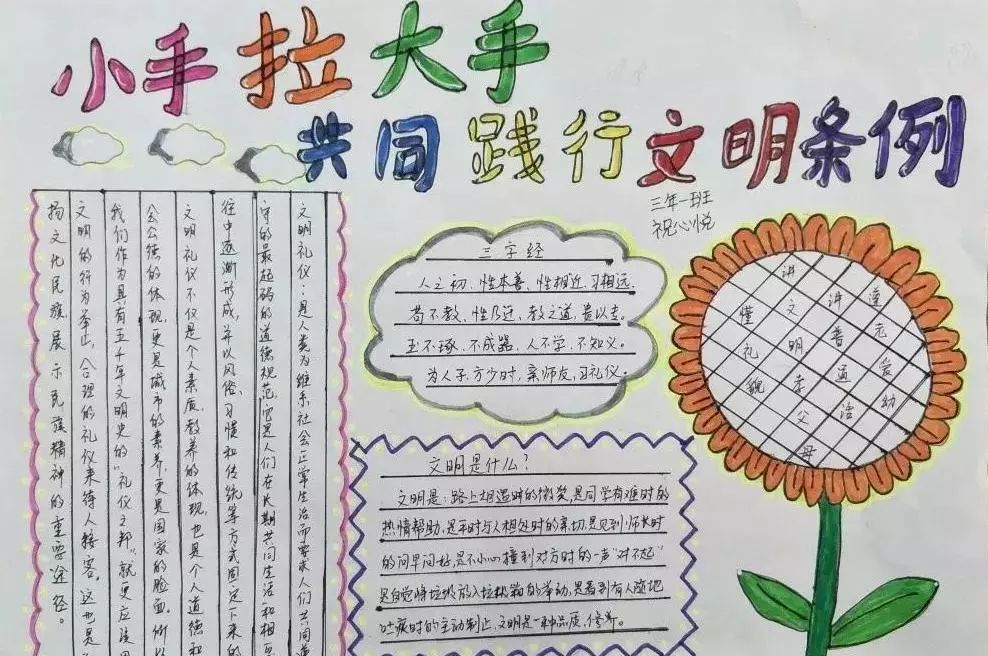 小手拉大手
共同践行文明条例
三年一班
祝心悦
文明礼仪：是人类为维系社会正常生活而要求人们共同遵
守的最起码的道德规范，它是人们在长期共同生活和相互
往中逐渐形成，并以风俗、习惯和传统等方式固定下来的
文明礼仪不仅是个人素质、教养的体现，也是个人道德和
会公德的体现。更是城市的素养，更是国家的脸面。所以
我们作为具有五千年文明史的“礼仪之邦”，就更应该
文明的行为举止，合理的礼仪来待人接客。这也是
扬文化民族展示民族精神的重要途径。
三字经
人之初、性本善、性相近、习相远、
苟不教、性乃迁、教之道、贵以专。
玉不琢、不成器、人不学、不知义。
为人子、方少时、亲师友、习礼仪。
文明是什么？
文明是：路上相遇时的微笑，是同学有难时的
热情帮助，是平时与人相处时的亲切，是见到师长时
的问早问好，是不小心撞到对方时的一声“对不起”
是自觉将垃圾放入垃圾箱的举动，是看到有人随地
吐痰时的主动制止，文明是一种品质、修养。
讲文明
懂礼貌
讲善道
老爱幼
孝父母